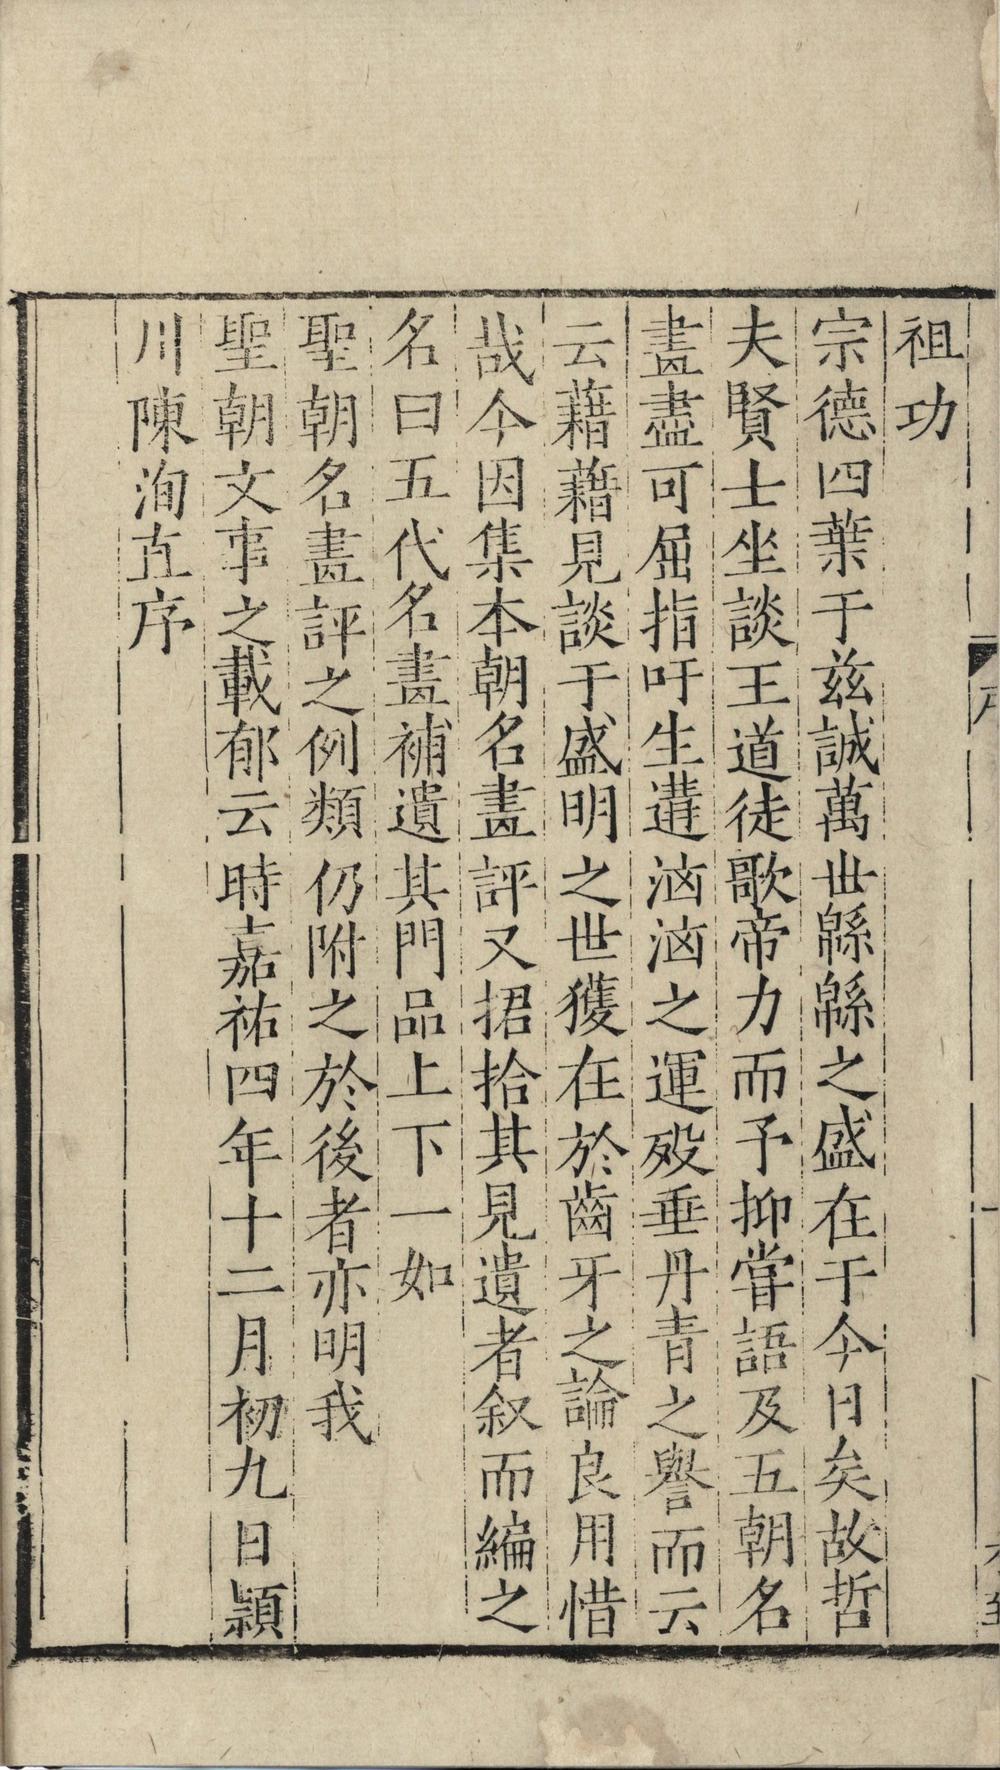 祖功
宗德四葉于兹誠萬世緜緜之盛在于今日矣故哲
夫賢士坐談王道徒歌帝力而予抑甞語及五朝名
畫盡可屈指吁生遘洶洶之運殁垂丹青之譽而云
云藉藉見談于盛明之世獲在於齒牙之論良用惜
哉今因集本朝名畫評又捃拾其見遺者叙而編之
名曰五代名畫補遺其門品上下一如
聖朝名畫評之例類仍附之於後者亦明我
聖朝文事之載郁云時嘉祐四年十二月初九日潁
川陳洵直序